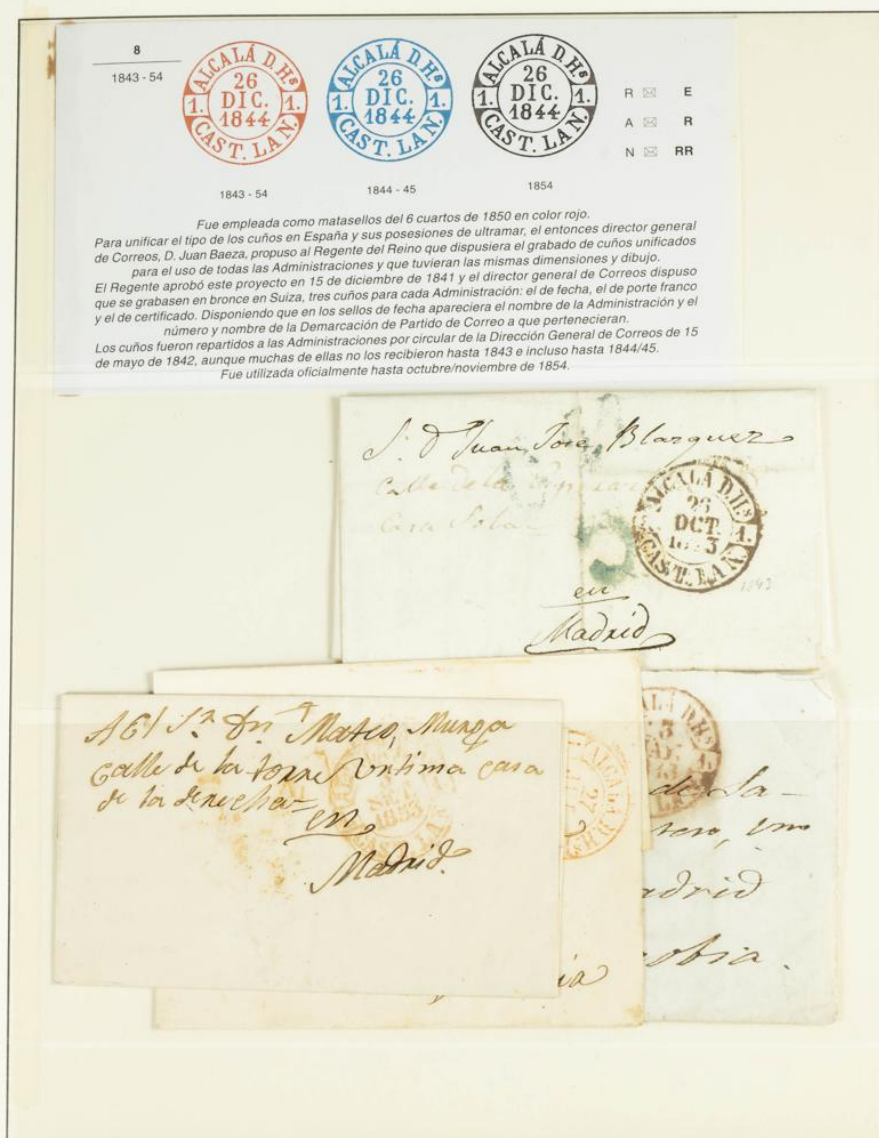 8
1843 - 54
ALCALÁ D. Hˢ
26
DIC.
1844
1. 1.
CAST. LA N.
1843 - 54
ALCALÁ D. Hˢ
26
DIC.
1844
1. 1.
CAST. LA N.
1844 - 45
ALCALÁ D. Hˢ
26
DIC.
1844
1. 1.
CAST. LA N.
1854
R E
A R
N RR
Fue empleada como matasellos del 6 cuartos de 1850 en color rojo.
Para unificar el tipo de los cuños en España y sus posesiones de ultramar, el entonces director general
de Correos, D. Juan Baeza, propuso al Regente del Reino que dispusiera el grabado de cuños unificados
para el uso de todas las Administraciones y que tuvieran las mismas dimensiones y dibujo.
El Regente aprobó este proyecto en 15 de diciembre de 1841 y el director general de Correos dispuso
que se grabasen en bronce en Suiza, tres cuños para cada Administración: el de fecha, el de porte franco
y el de certificado. Disponiendo que en los sellos de fecha apareciera el nombre de la Administración y el
número y nombre de la Demarcación de Partido de Correo a que pertenecieran.
Los cuños fueron repartidos a las Administraciones por circular de la Dirección General de Correos de 15
de mayo de 1842, aunque muchas de ellas no los recibieron hasta 1843 e incluso hasta 1844/45.
Fue utilizada oficialmente hasta octubre/noviembre de 1854.
S. D Juan José Blazquez
Calle de la
Casa Sola
ALCALÁ D. Hˢ
26
OCT.
1.
CAST. LA N.
1843
en
Madrid
Al Sr. Dn Mateo Munga
Calle de la torre ultima casa
de la derecha
en
Madrid
1853
de Sa-
adrid